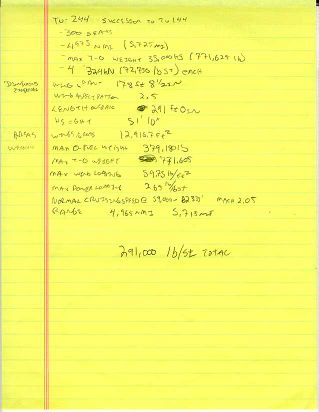 TU-244 SUCCESSOR TO TU144
-300 SEATS
-4,975 NMI (5,725 MI)
-MAX T-O WEIGHT 35,000 KG (771,625 lb)
-4 324KN (72,750 lb ST) EACH
DIMENSIONS EXTERNAL WING SPAN 178 ft 8 1/2 in
WING ASPECT RATIO 2.5
LENGTH OVERALL 291 ft 0 in
HEIGHT 51' 10"
AREAS WINGS, GROSS 12,916.7 ft²
MAX FUEL WEIGHT 379,180 lb
MAX T-O WEIGHT 771,605
MAX WING LOADING 59.75 lb/ft²
MAX POWER LOADING 2.65 lb/lb st
NORMAL CRUISING SPEED @ MACH 2.05
RANGE 4,965 NMI 5,715 mi
291,000 lb/st TOTAL